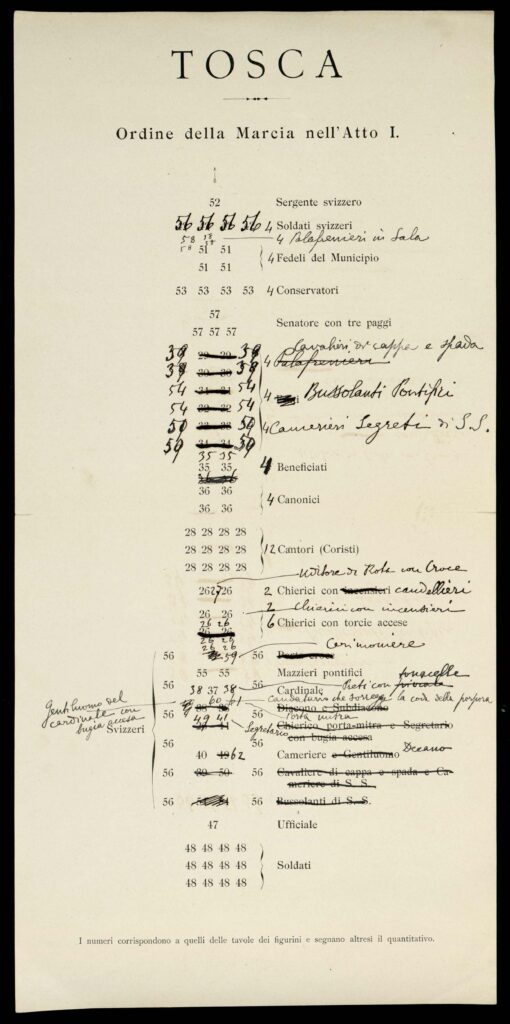 TOSCA
Ordine della Marcia nell'Atto I.
52 Sergente svizzero
56 56 56 56 4 Soldati svizzeri
58 58 4 Palafrenieri in Sala
58 51 51 4 Fedeli del Municipio
51 51
53 53 53 53 4 Conservatori
57
Senatore con tre paggi
57 57 57
Cavalieri di cappa e spada
39 39 4 Palafrenieri
38 38
54 54 4 Bussolanti Pontifici
54 54
50 50 4 Camerieri Segreti di S. S.
50 50
35 35
35 35 4 Beneficiati
36 36
36 36 4 Canonici
36 36
28 28 28 28
28 28 28 28 12 Cantori (Coristi)
28 28 28 28
Uditore di Rota con Croce
26 27 26 2 Chierici con incensieri candellieri
2 Chierici con incensieri
26 26 6 Chierici con torcie accese
26 26
26 26
26 26
Cerimoniere
56 59 56 Porta croce
55 55 Mazzieri pontifici
56 38 37 38 56 Cardinale Preti con
60 61 caudatario che sorregge la coda della porpora
Gentiluomo del
cardinale con
bugia accesa
Svizzeri
56 56 Diacono e Subdiacono
Porta mitra
49 41 Chierico porta-mitra e Segretario
Segretario con bugia accesa
56 56
40 62 Cameriere e Gentiluomo Decano
56 39 50 56 Cavaliere di cappa e spada e Ca-
meriere di S. S.
56 56 Bussolanti di S. S.
47 Ufficiale
48 48 48 48
48 48 48 48 Soldati
48 48 48 48
I numeri corrispondono a quelli delle tavole dei figurini e segnano altresì il quantitativo.